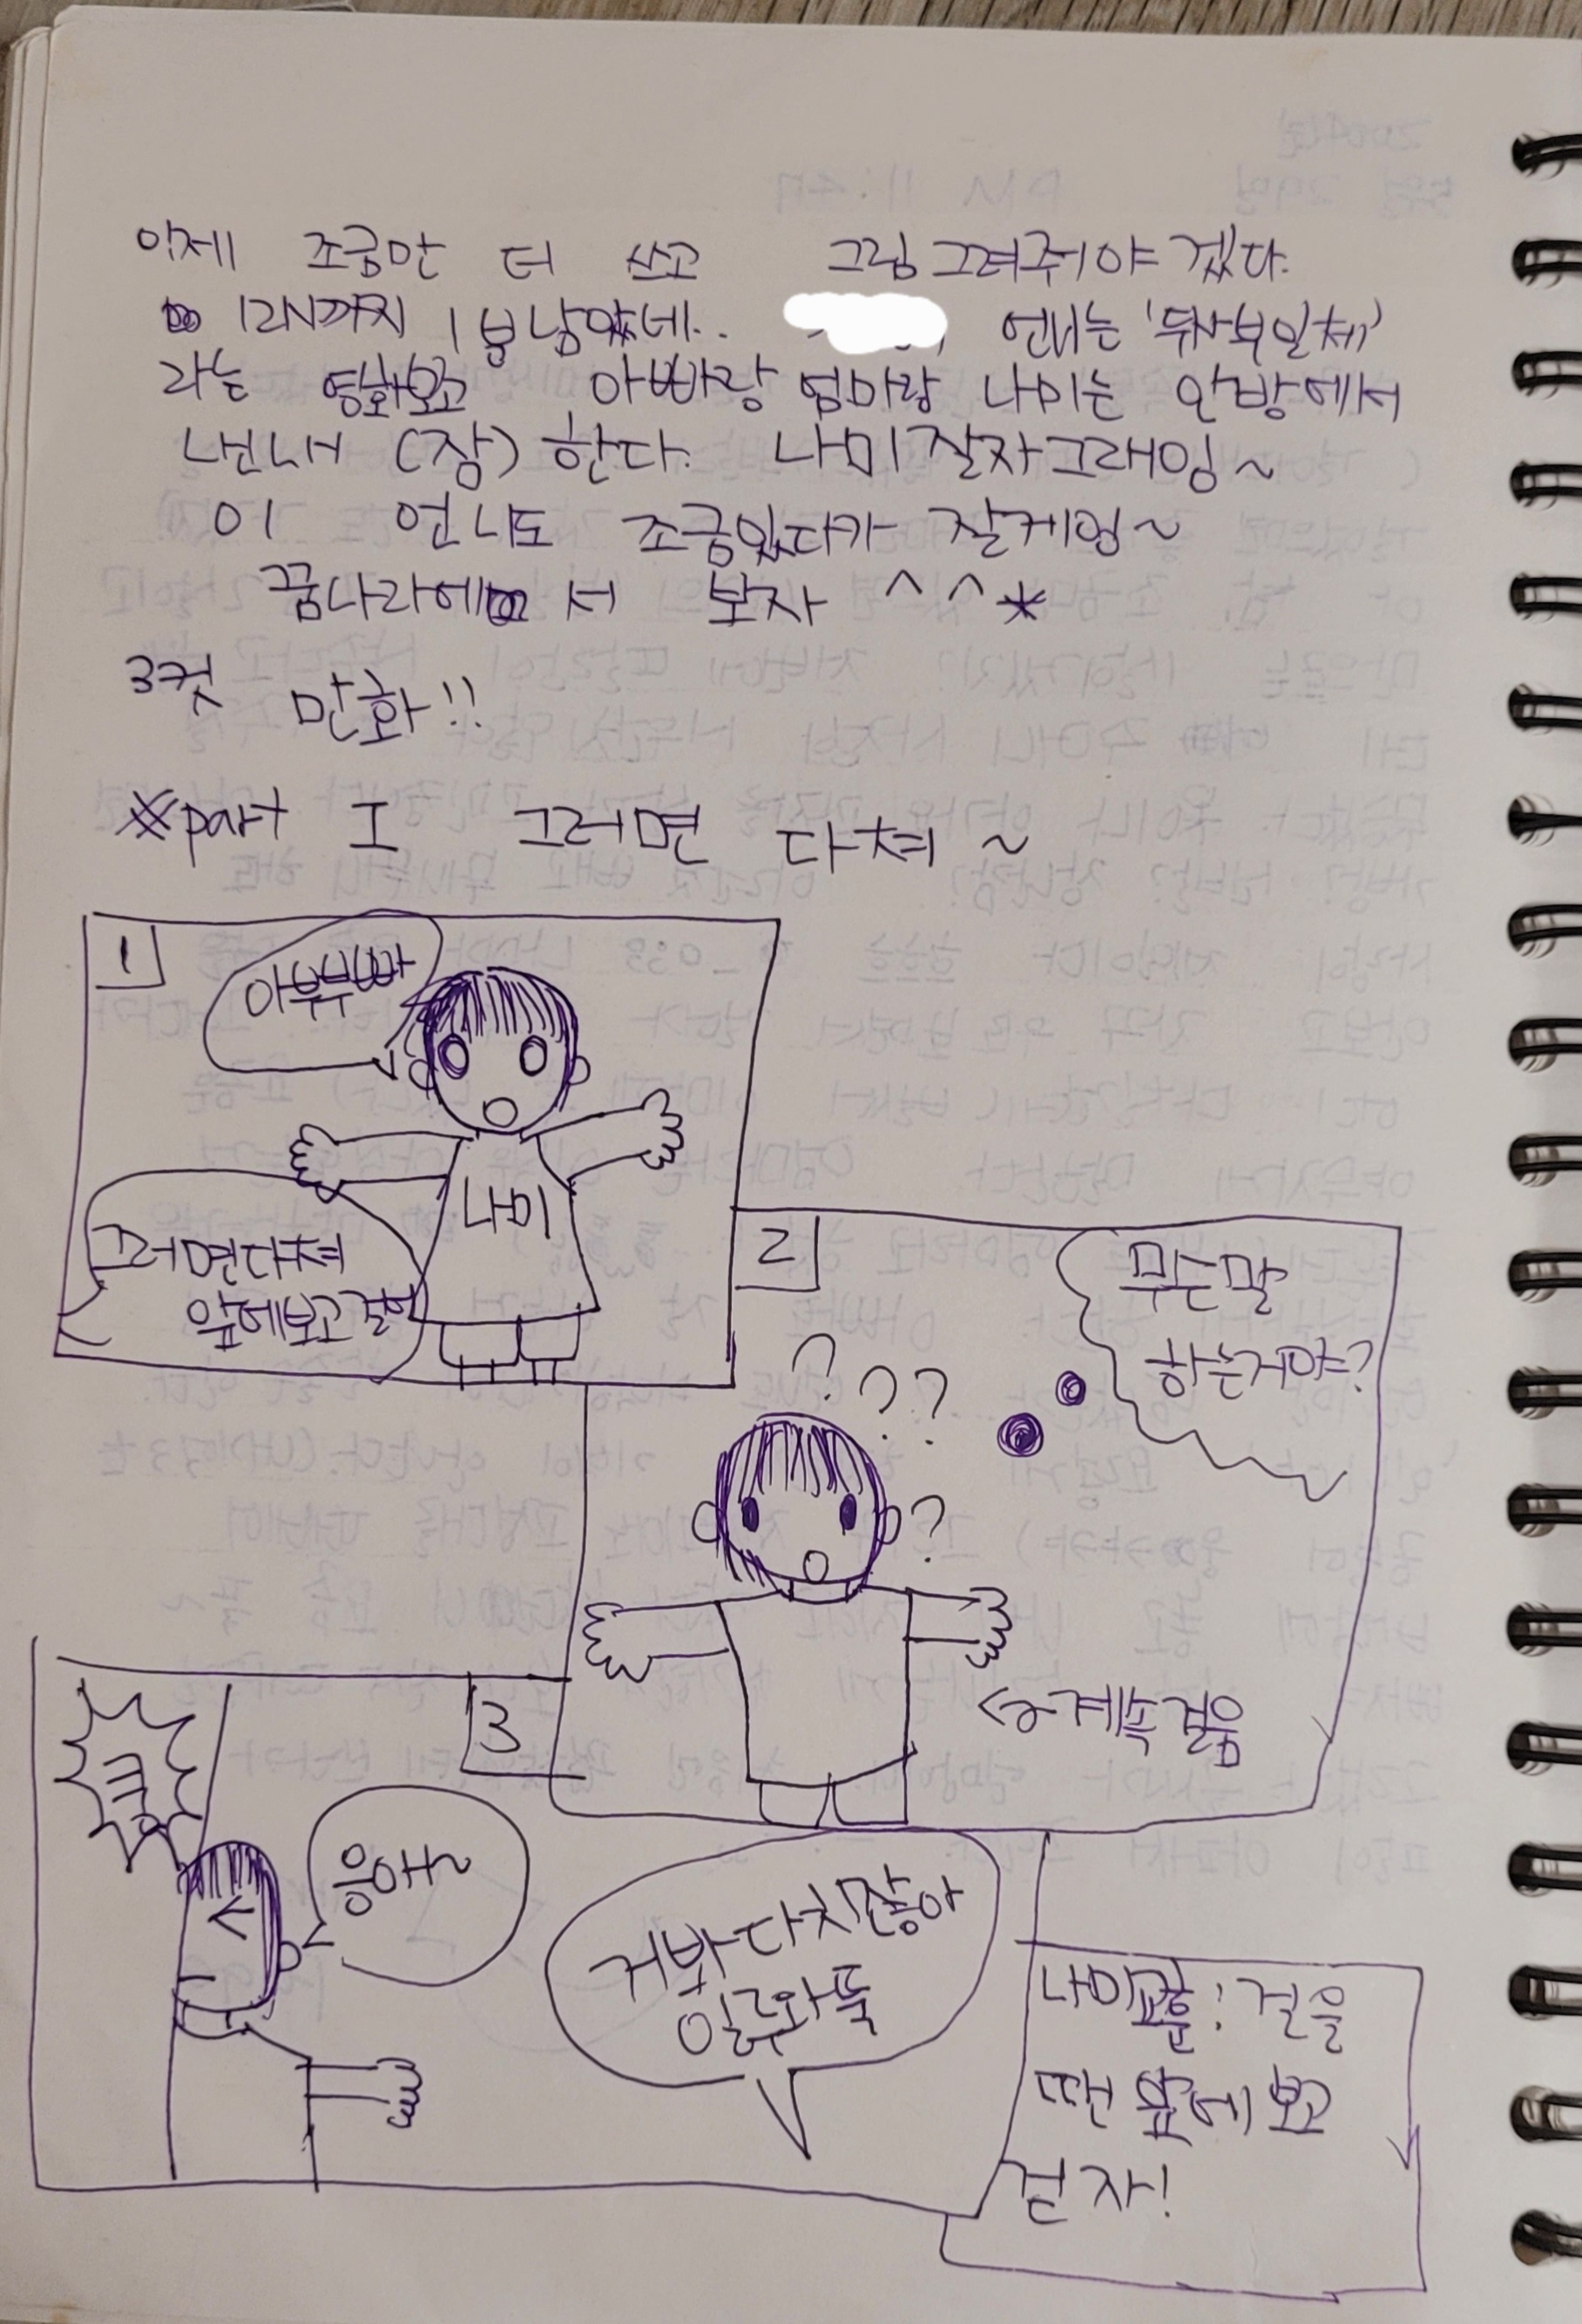 이제 조금만 더 쓰고 그림그려줘야겠다.
12시까지 1분남았네.. 언니는 '두사부일체'
라는 영화보고 아빠랑 엄마랑 나미는 안방에서
넨네 (잠) 한다. 나미잘자그래잉~
이 언니도 조금있다가 잘게잉~
꿈나라에서 보자 ^^*
3컷 만화!!
※part I 그러면 다쳐~
1
아뿌뿌빠
나미
그러면다쳐
앞에보고걸어
2
무슨말
하는거야?
? ? ?
?
←계속걸음
3
쿵
응애~
거봐다치잖아
일루와뚝
나미교훈! 걸을
땐 앞에 보고
걷자!